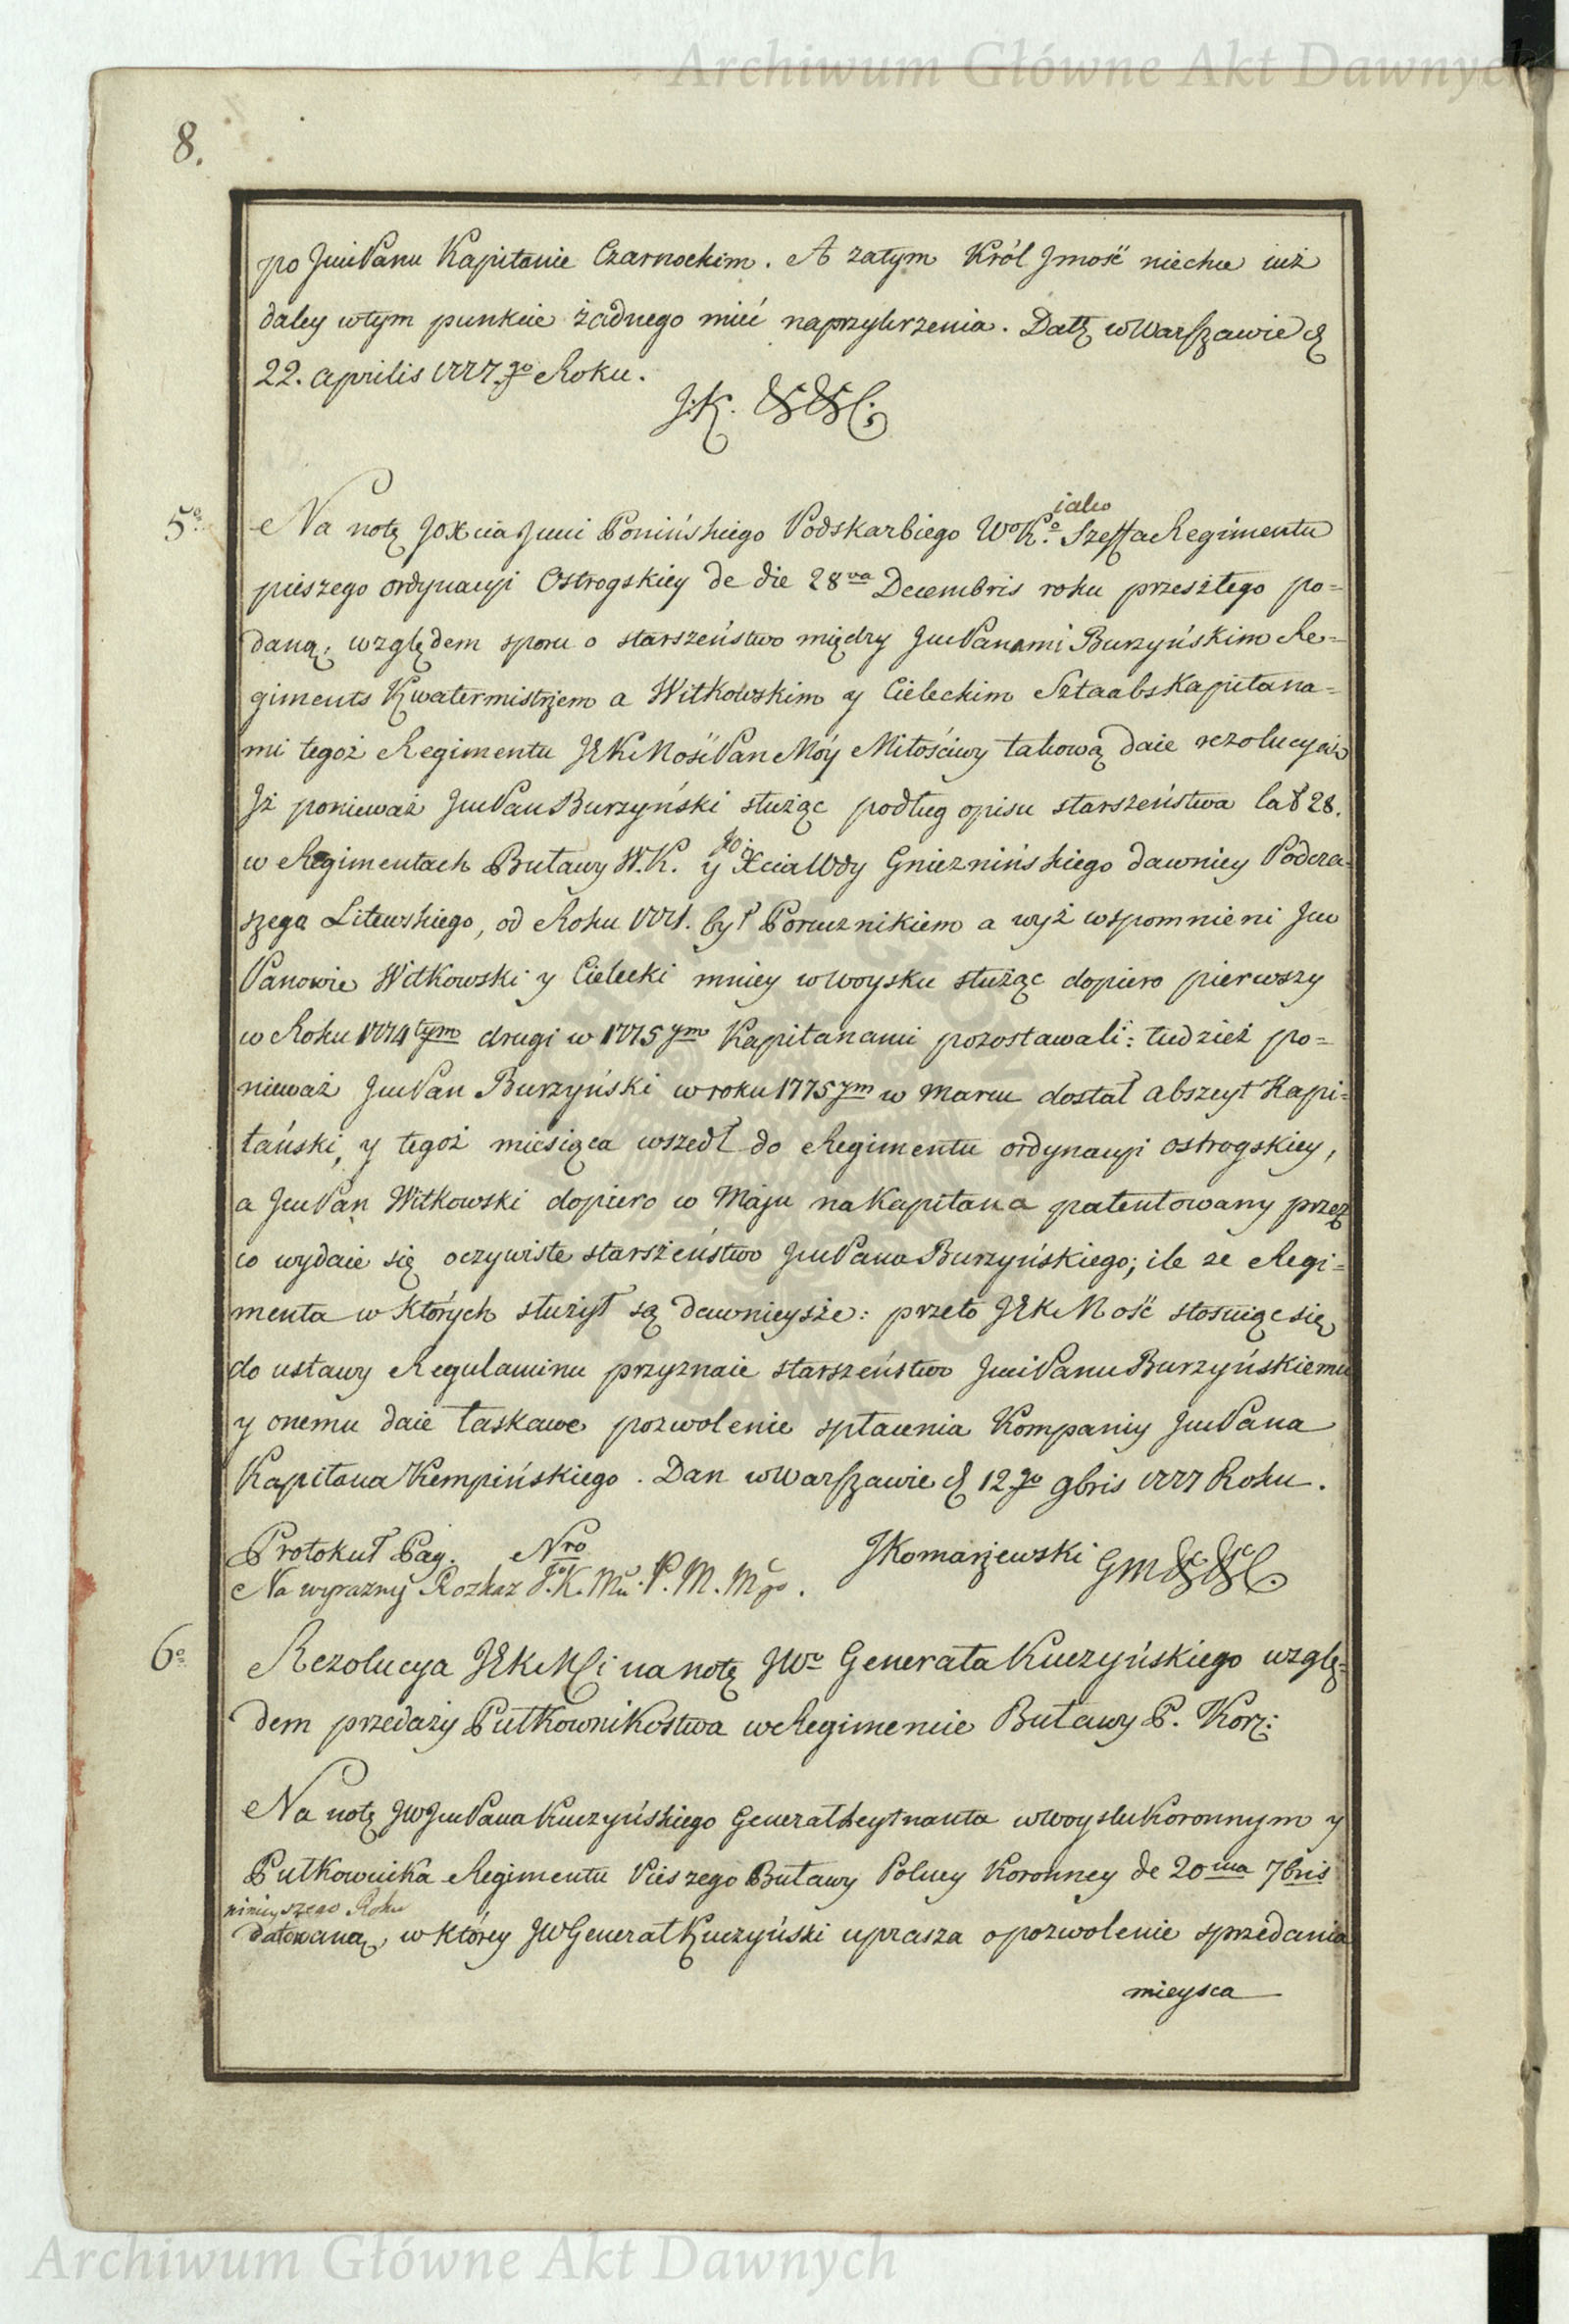 Archiwum Główne Akt Dawnych
8.
po JmciPanu Kapitanie Czarnockim. A zatym Król Jmość niechce iuż
daley wtym punkcie żadnego mieć naprzykrzenia. Datt wWarszawie d
22. Aprilis 1777.go Roku.
J.K. &&c.
5o
iako
Na notę JOXcia Jmci Ponińskiego Podskarbiego WoKo. Szeffa Regimentu
pieszego ordynacyi Ostrogskiey de die 28va Decembris roku przeszłego po=
daną, względem sporu o starszeństwo między JmcPanami Burzyńskim Re=
giments Kwatermistrzem a Witkowskim y Cieleckim Sztaabs Kapitana=
mi tegoż Regimentu JEKMość Pan Móy Miłościwy takową daie rezolucyą
Jż ponieważ JmcPan Burzyński służąc podług opisu starszeństwa lat 28.
w Regimentach Buławy W.K. y JO. Xcia Wdy Gnieznińskiego dawniey Podcza=
szego Litewskiego, od Roku 1771. był Porucznikiem a wyż wspomnieni Jmc
Panowie Witkowski y Cielecki mniey wWoysku służąc dopiero pierwszy
w Roku 1774tym drugi w 1775ym Kapitanami pozostawali: tudzież po=
nieważ JmcPan Burzyński w roku 1775ym w Marcu dostał abszeyt Kapi=
tański, y tegoż miesiąca wszedł do Regimentu ordynacyi ostrogskiey,
a JmcPan Witkowski dopiero w Maju na Kapitana patentowany przez
co wydaie się oczywiste starszeństwo JmcPana Burzyńskiego; ile ze Regi=
menta w których służył są dawnieysze: przeto JEKMość stosuiąc się
do ustawy Regulaminu przyznaie starszeństwo JmciPanu Burzyńskiemu
y onemu daie łaskawe pozwolenie spłacenia Kompaniy JmcPana
Kapitana Kempińskiego. Dan wWarszawie d 12.go 9bris 1777 Roku.
Protokuł Pag. Nro JKomarzewski GM&c&c.
Na wyrazny Rozkaz J.K.Mci. P. M. Mgo.
6o
Rezolucya JEKMCi na notę JWo Generała Kuczyńskiego wzglę=
dem przedaży Pułkownikostwa wRegimencie Buławy P. Kor:
Na notę JWJmcPana Kuczyńskiego Generał Leytnanta wWoysku Koronnym y
Pułkownika Regimentu Pieszego Buławy Polney Koronney de 20ma 7bris
ninieyszego Roku
datowaną, w którey JWGenerał Kuczyński uprasza o pozwolenie sprzedania
mieysca
Archiwum Główne Akt Dawnych